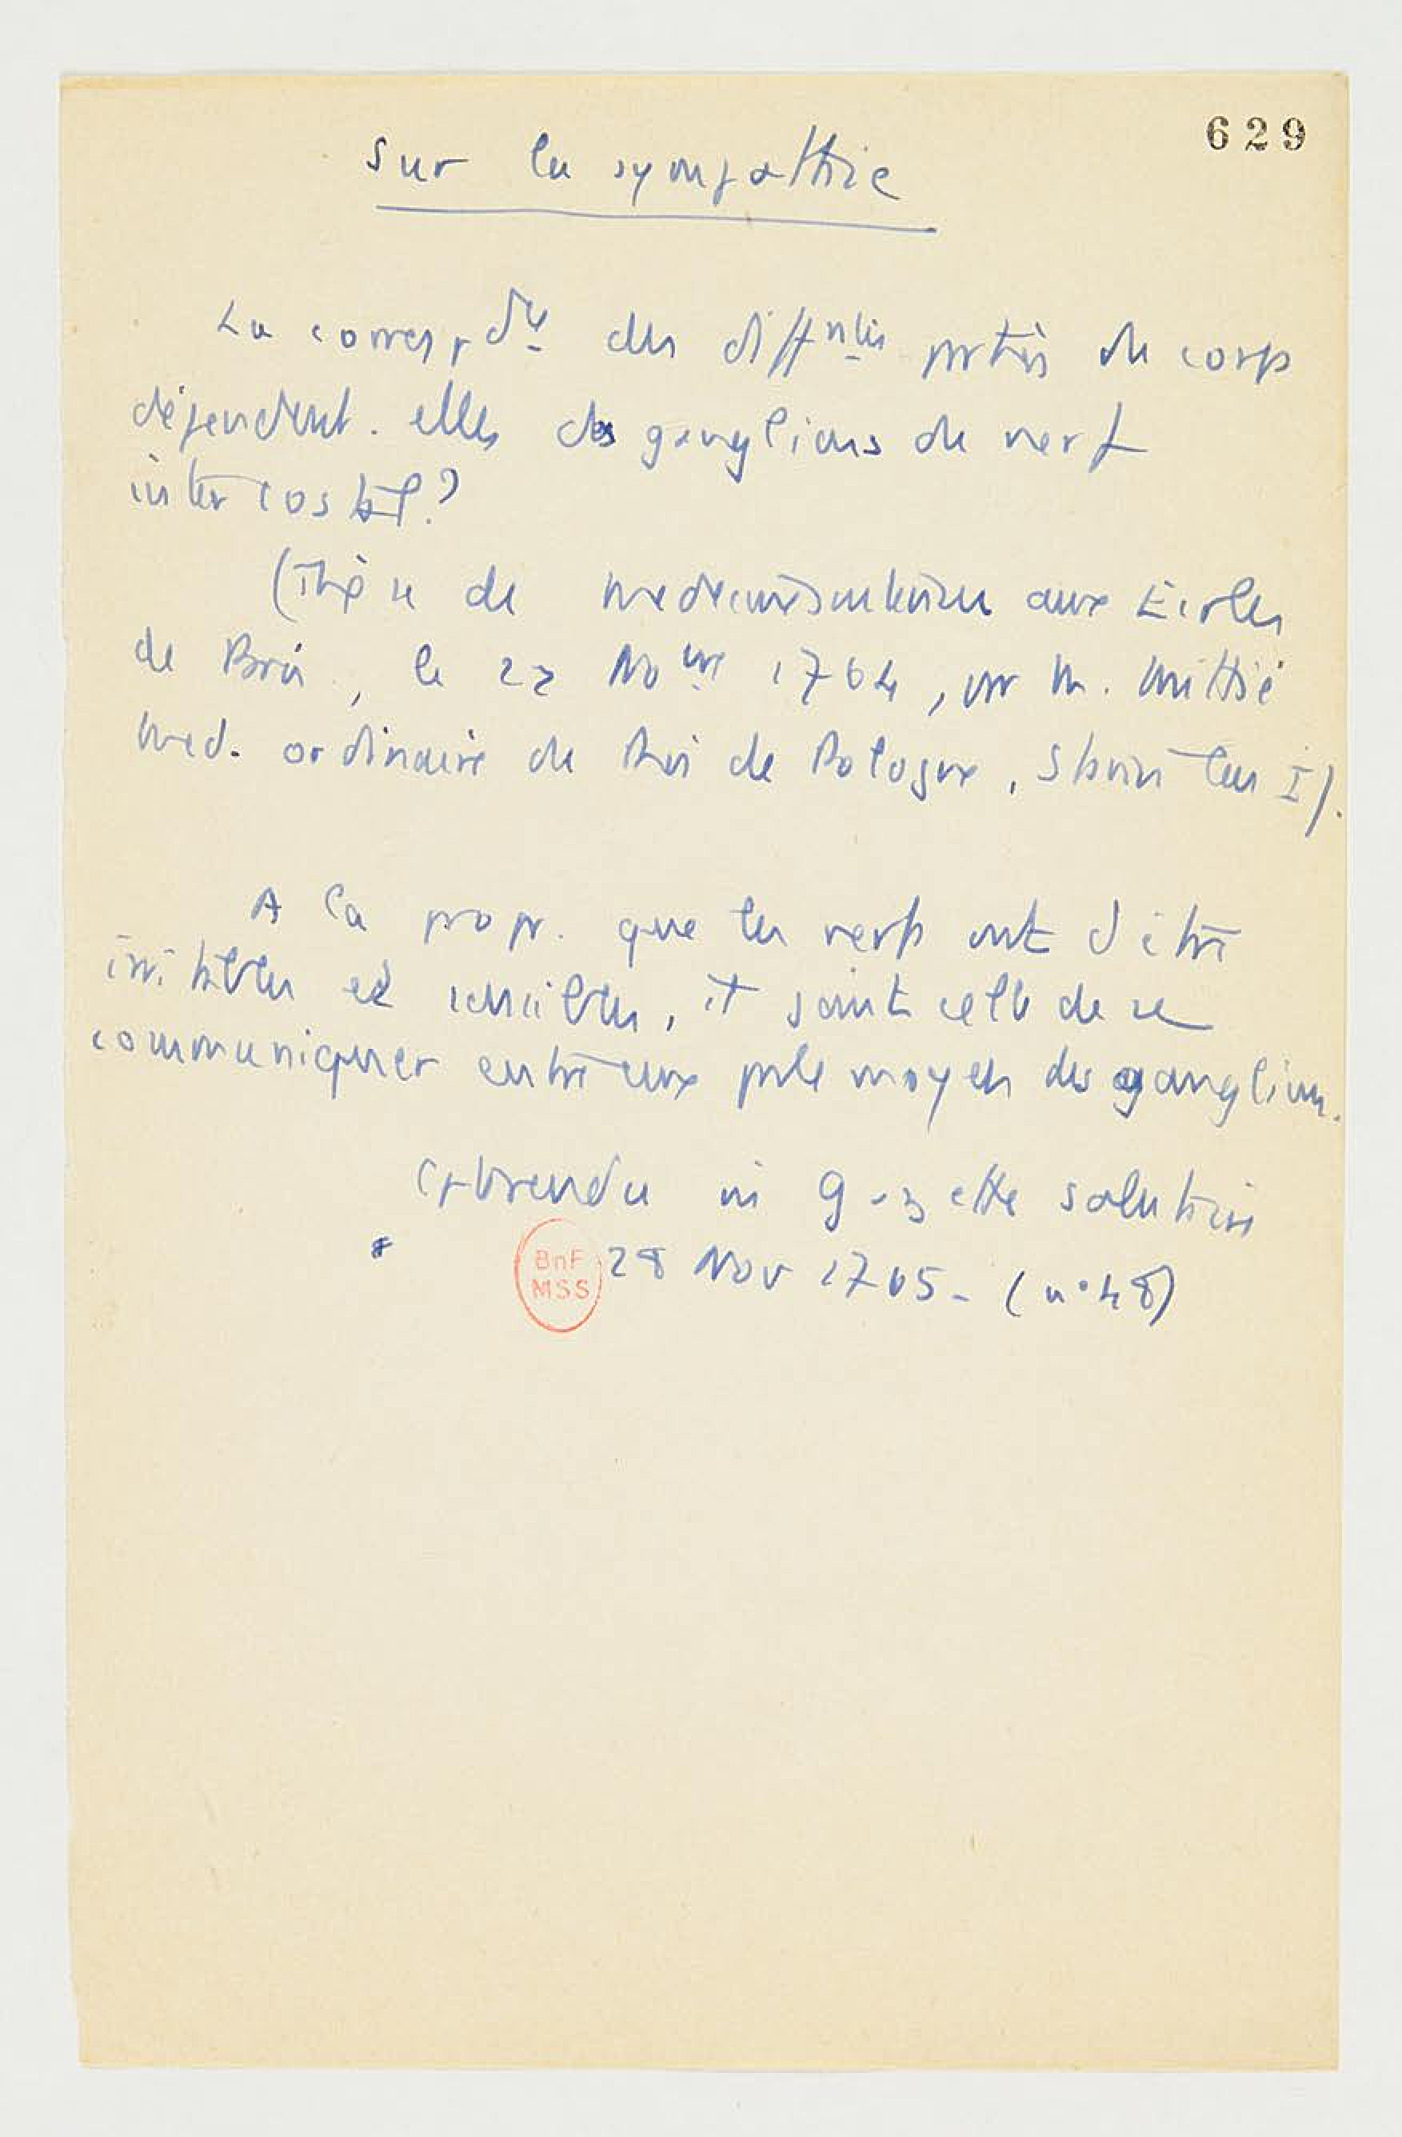 629
Sur la sympathie
La corresp dce des diff ntes parties du corps
dépendent-elles des ganglions du nerf
intercostal ?
(Thèse de médecine soutenue aux Ecoles
de , le 22 No vbre 1764, par M. Mittié
med. ordinaire du Roi de Pologne, Stanislas I).
A la propr. que les nerfs ont d'être
irritables et sensibles, il joint celle de se
communiquer entre eux par le moyen des ganglions.
Cpte rendu in Gazette salutaire
BnF
MSS
28 Nov 1765 - (n° 48)